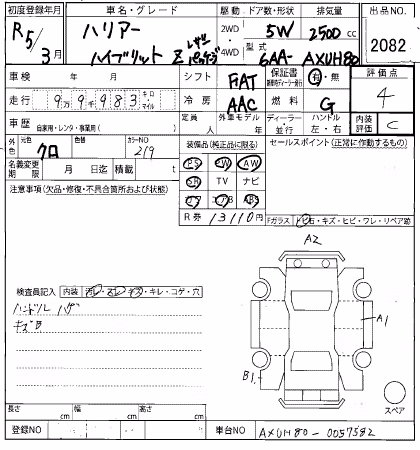 初度登録年月 車名・グレード 駆動 ドア数・形状 排気量 出品NO.
R5/3月 ハリアー 2WD 5W 2500cc 2082
ハイブリット Z レザーパッケージ 4WD 型式 6AA-AXUH80
車検 年 月 シフト FAT 保証書 有・無 評価点
走行 9万9千983 キロ マイル 冷房 AAC 燃料 G 4
車歴 自家用・レンタ・事業用( ) 定員 人 外車モデル 年 ディーラー・並行 ハンドル 左・右 内装評価 C
外色 元色 クロ 色替 カラーNO 219 装備品(純正品に限る) セールスポイント(正常に作動するもの)
名義変更期限 月 日迄 積載 t PS PW AW
注意事項(欠品・修復・不具合箇所および状態) SR TV ナビ
カワ エアB ABS
R券 13110円 Fガラス トビ石・キズ・ヒビ・ワレ・リペア跡
A2
検査員記入 内装 汚レ・スレ・キズ・キレ・コゲ・穴
ハンドル ハゲ
キズB
A1
B1
スペア
長さ cm 幅 cm 高さ cm
登録NO 車台NO AXUH80-0057582